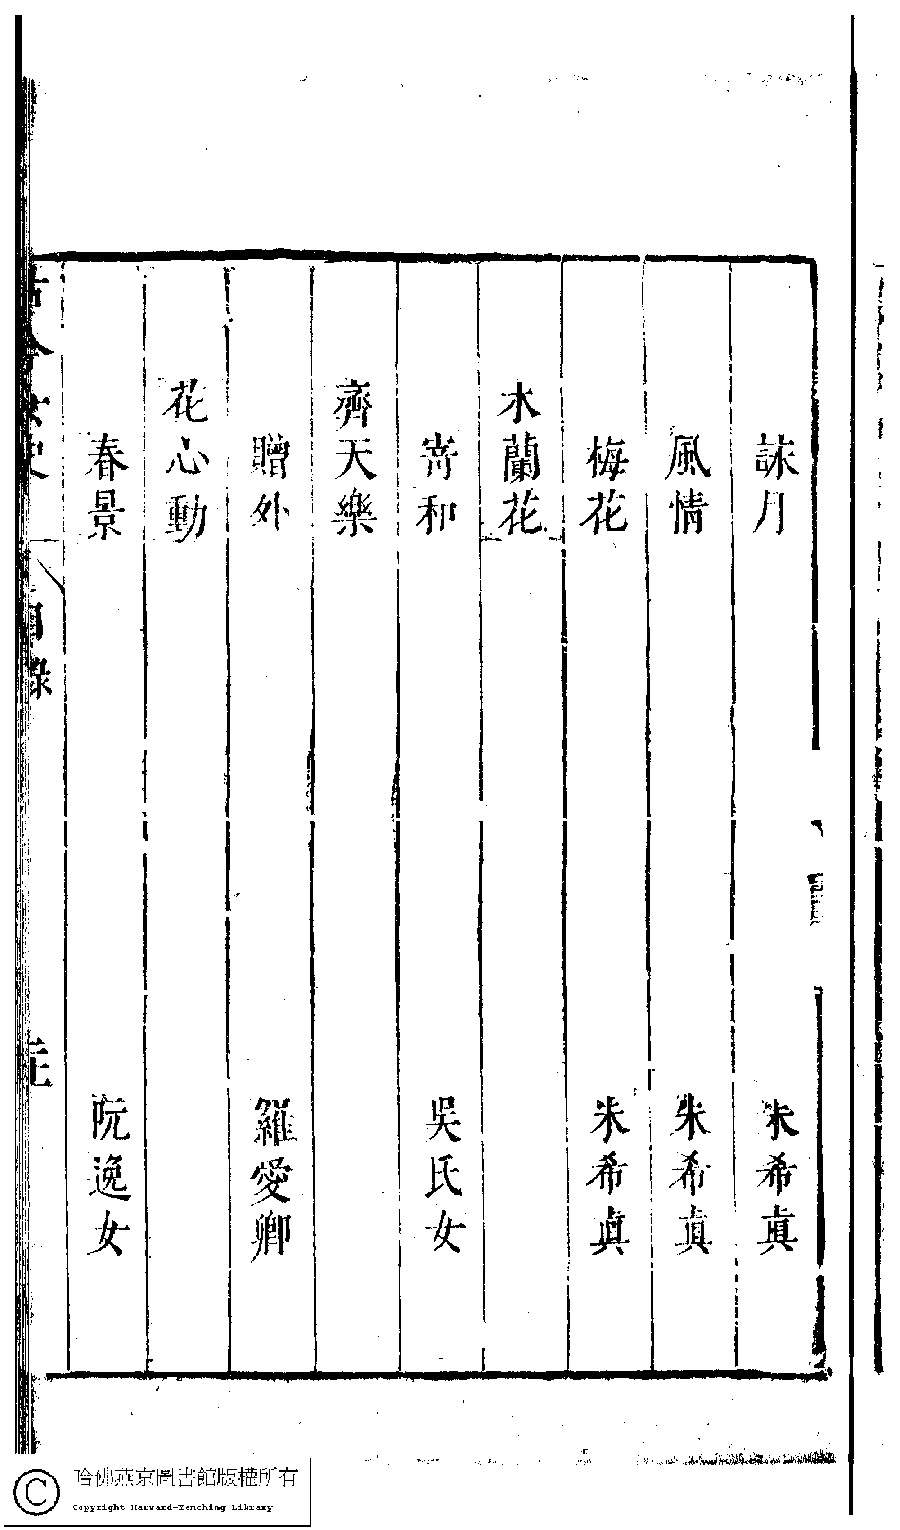 詠月　朱希眞
風情　朱希眞
梅花　朱希眞
木蘭花
寄和　吳氏女
齊天樂
贈外　羅愛卿
花心動
春景　阮逸女
古今女史　目錄
哈佛燕京圖書館版權所有
Copyright Harvard-Yenching Library